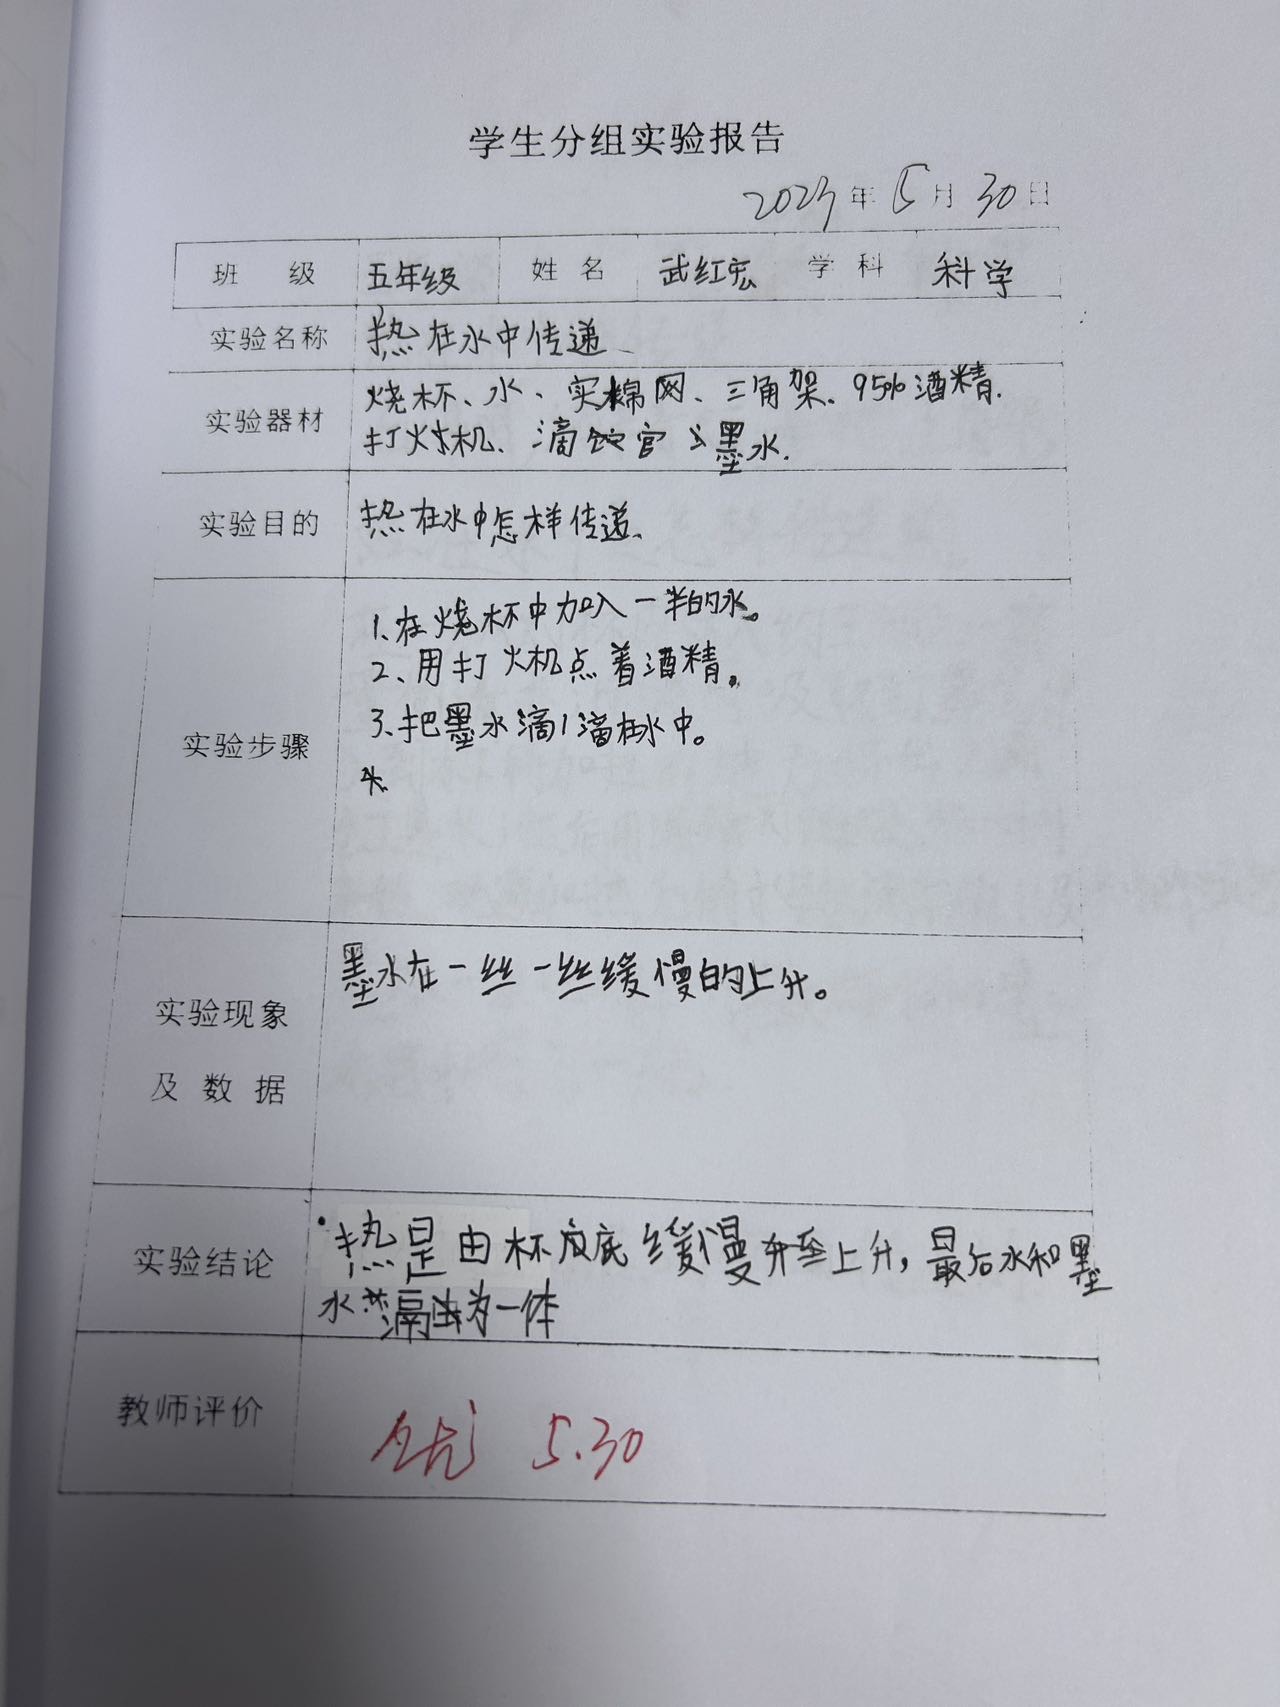 学生分组实验报告
年5月30日
班 级 五年级 姓 名 武红宏 学 科 科学
实验名称 热在水中传递
实验器材 烧杯、水、实棉网、三角架、95%酒精.
打火机、滴 墨水.
实验目的 热在水中怎样传递、
实验步骤
1、在烧杯中加入一半的水。
2、用打火机点着酒精。
3、把墨水滴1滴在水中。
实验现象
及数据
墨水在一丝一丝缓慢的上升。
实验结论 热是由杯 底缓慢 上升，最后水和墨
水 为一体
教师评价 优 5.30